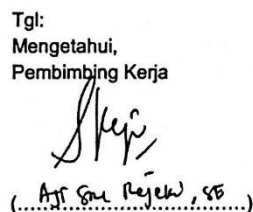 Tgl:
Mengetahui,
Pembimbing Kerja
(Aji Sri Rejeki, SE)